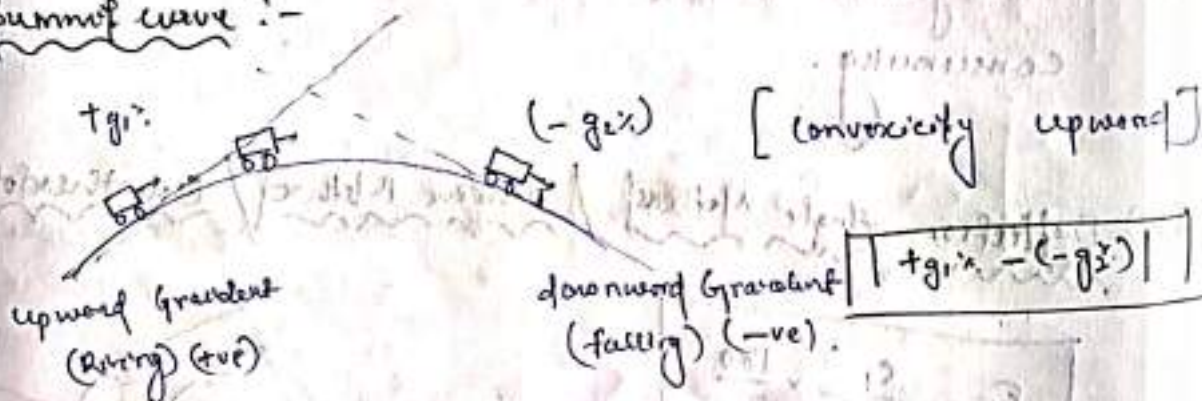 Summit curve :-
+g₁%
(-g₂%)
[convexicity upward]
| +g₁% - (-g₂%) |
upward Gradient
(Rising) (+ve)
downward Gradient
(falling) (-ve).